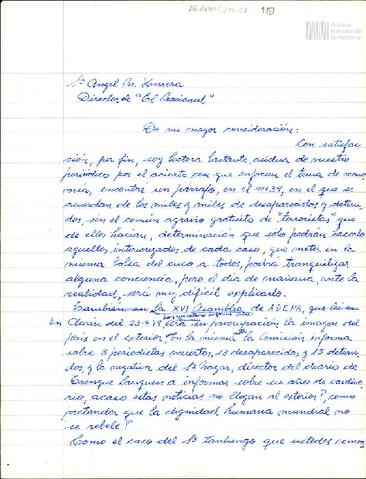 Archivo
Nacional de
la Memoria
Sr Angel M. Herrera
Director de "El Nacional"
De mi mayor consideración:
Con satisfac-
ción, por fin, soy lectora bastante asidua de vuestro
periódico por el acierto con que enfocan el tema de econo
mía, encontré un párrafo, en el nº 34, en el que se
acuerdan de los miles y miles de desaparecidos y deteni
dos, sin el común agravio gratuito de "terroristas" que
de ellos hacían, determinación que sólo podrán hacerlo
aquellos interiorizados de cada caso, que meter en la
misma bolsa del cuco a todos, podrá tranquilizar
alguna conciencia, pero el día de mañana, ante la
realidad, será muy difícil explicarlo.
También en la XVI Asamblea de ADEPA, que leí en
En Clarín del 23-4-78 era su preocupación la imagen del
país en el exterior, en la misma la Comisión informa
sobre 3 periodistas muertos, 13 desaparecidos y 13 deteni
dos, y la negativa del Sr Hogar, director del diario de
Trenque Lauquen a informar sobre su años de cautive
rio, acaso estas noticias no llegan al exterior?, como
pretender que la dignidad humana mundial no
se rebele?
Como el caso del Sr que ustedes comen